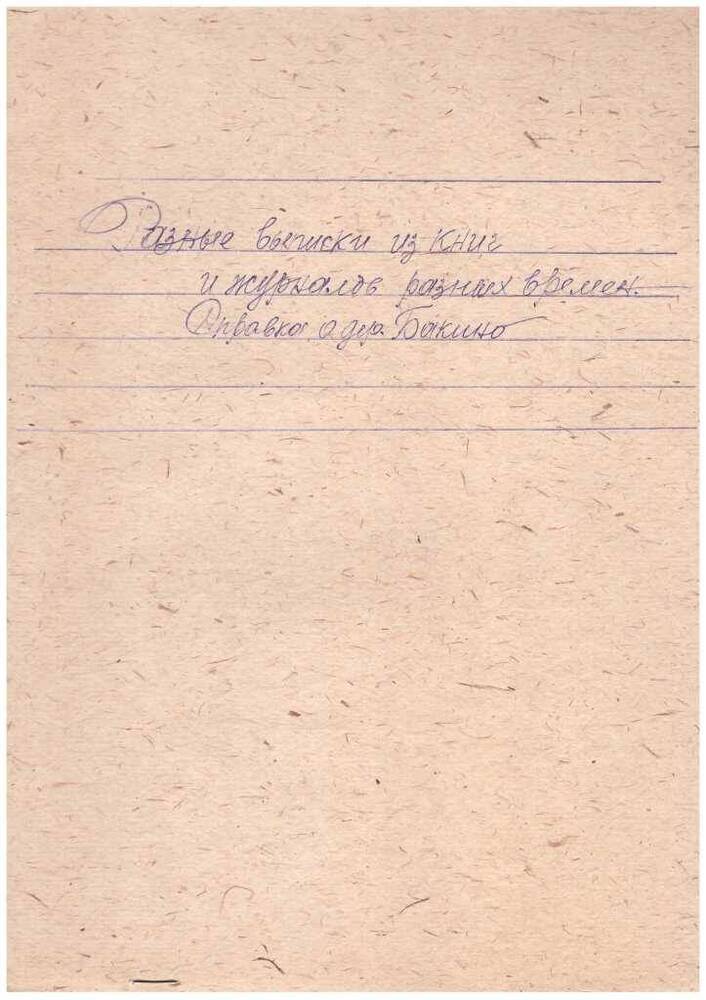 Разные выписки из книг
и журналов разных времен.
Справка о дер. Бакино